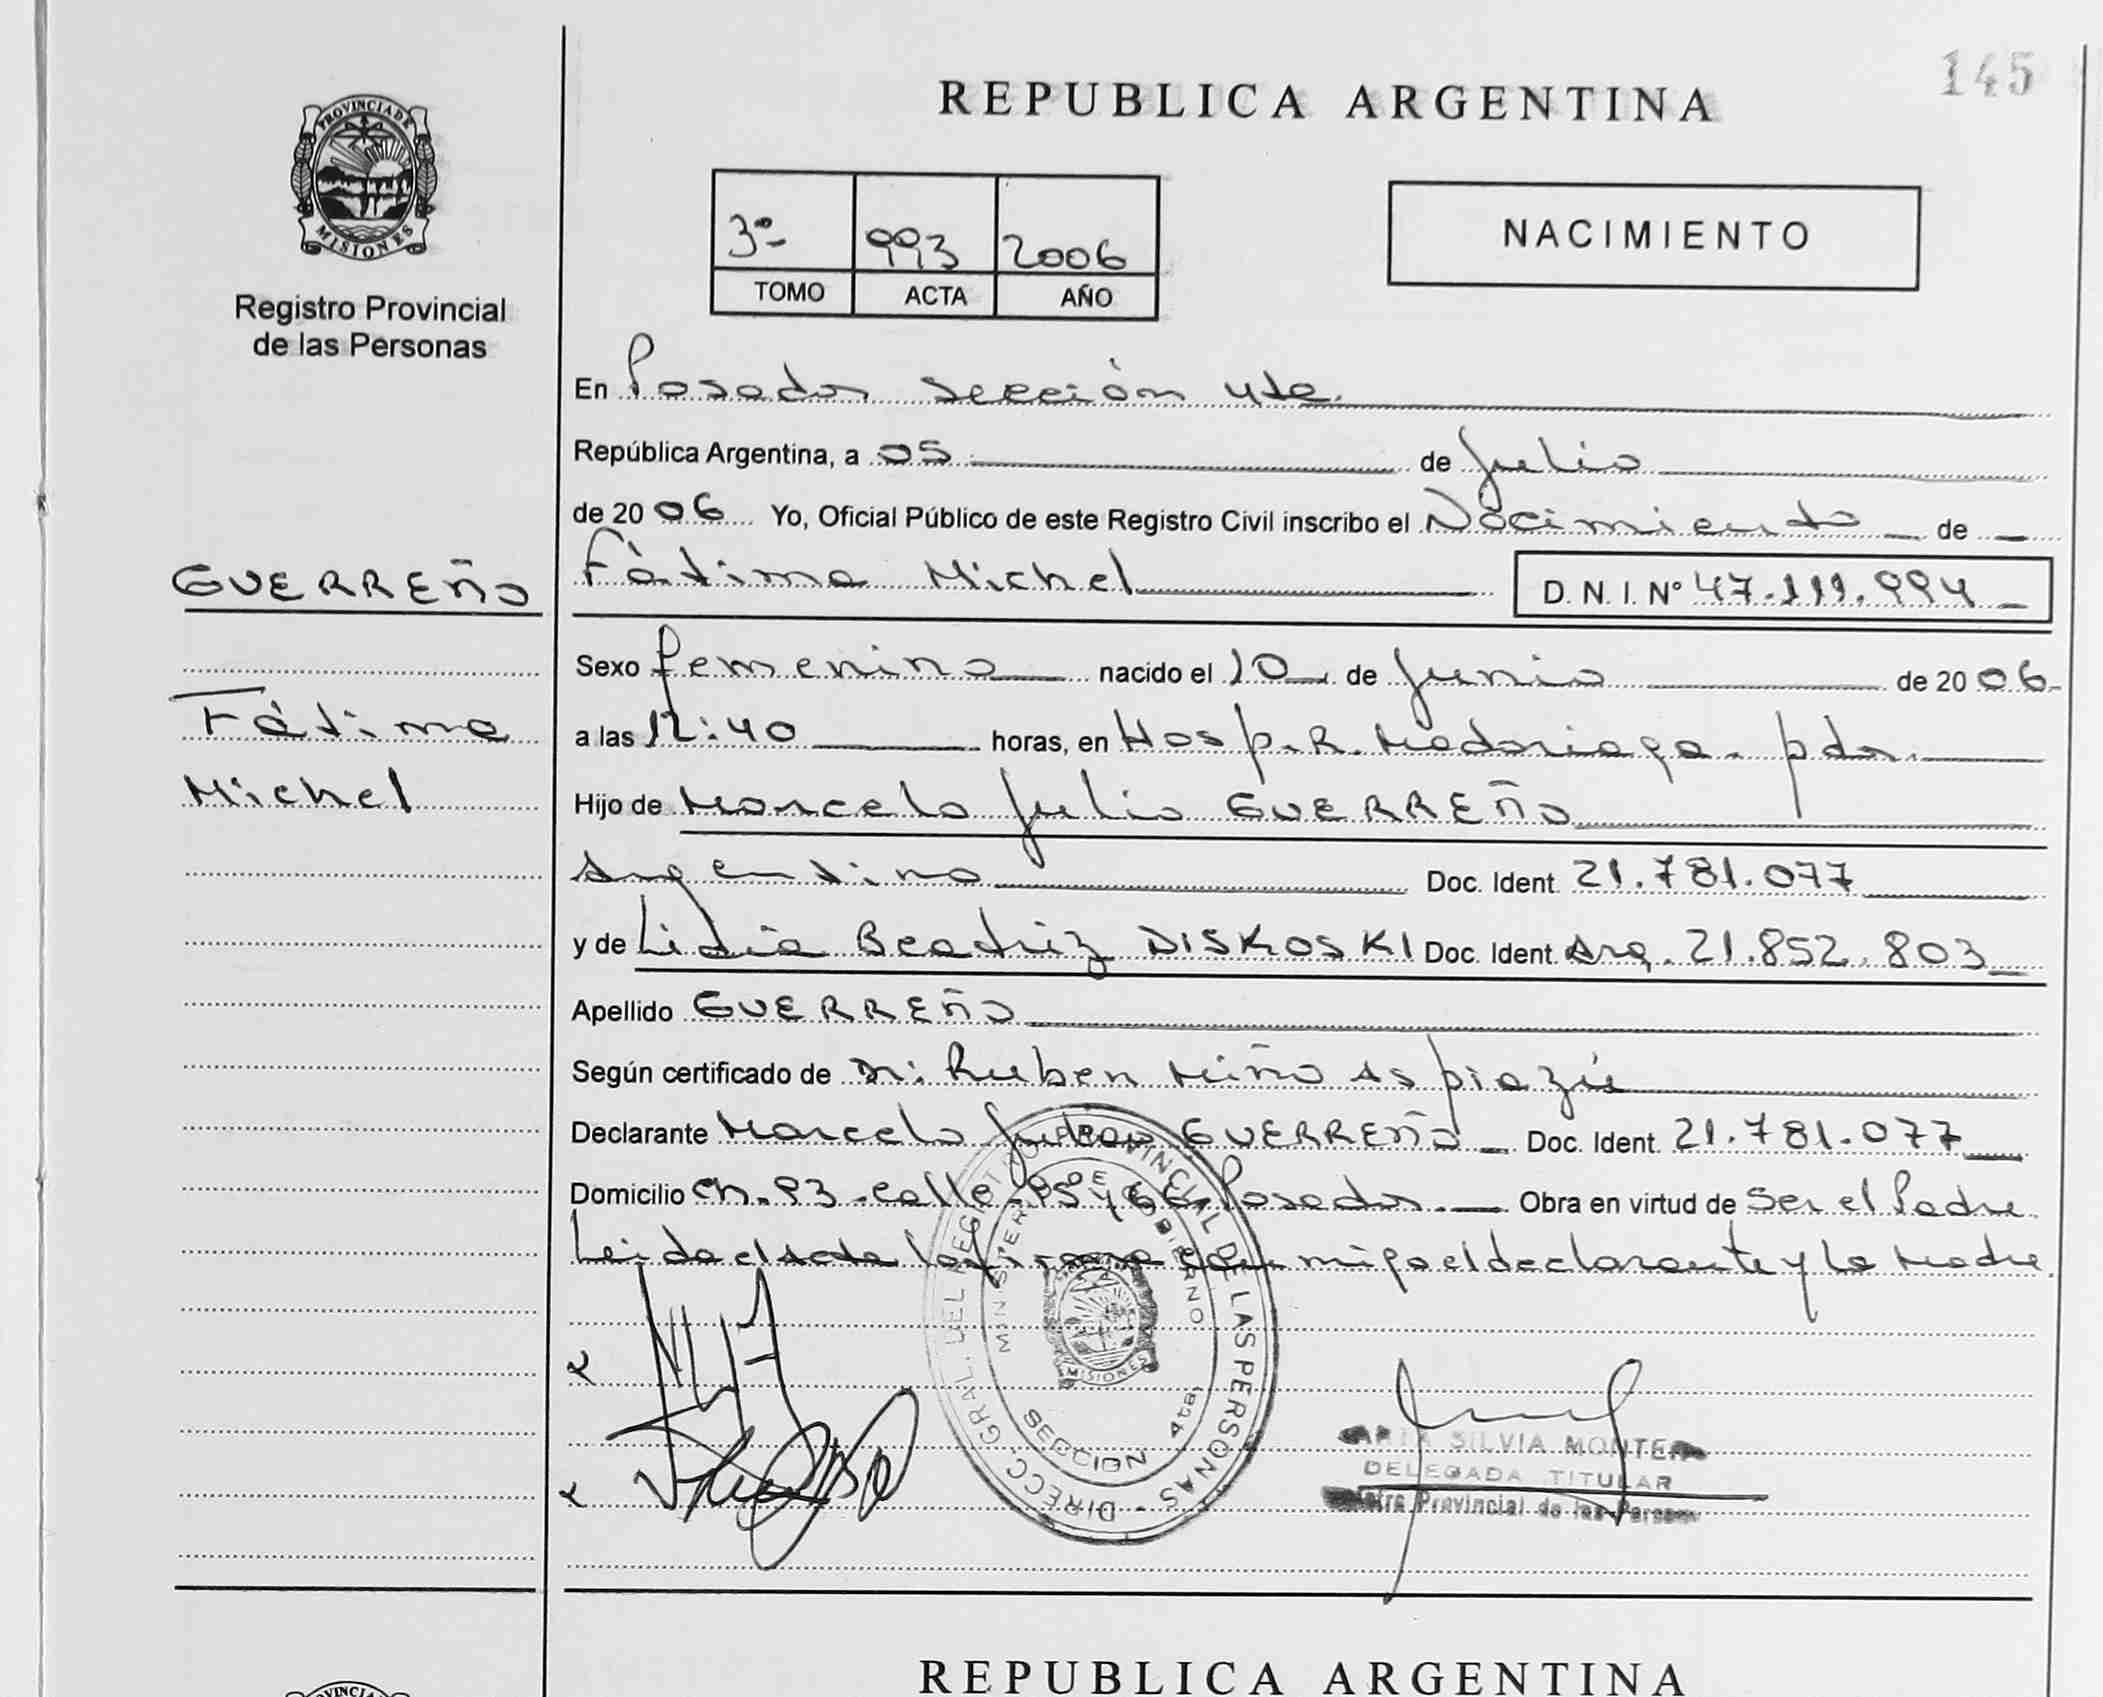 145
REPUBLICA ARGENTINA
PROVINCIA DE
MISIONES
Registro Provincial
de las Personas
3º 993 2006
TOMO ACTA AÑO
NACIMIENTO
En Posadas sección 4ta.
República Argentina, a 05 de Julio
de 2006 Yo, Oficial Público de este Registro Civil inscribo el Nacimiento de
GUERREÑO
Fátima Michel D. N. I. Nº 47.111.994
Sexo femenino nacido el 10 de Junio de 2006
Fátima
a las 12:40 horas, en Hosp. R. Madariaga. pdas.
Michel
Hijo de Marcelo Julio GUERREÑO
Argentino Doc. Ident. 21.781.077
y de Lidia Beatriz DISKOSKI Doc. Ident. Arg. 21.852.803
Apellido GUERREÑO
Según certificado de Dr: Ruben Miño Aspiazú
Declarante Marcelo Julio GUERREÑO Doc. Ident. 21.781.077
Domicilio Ch. 93. calle Posadas. Obra en virtud de Ser el Padre.
Leida el acta la firman con migo el declarante y la Madre.
DIRECC. GRAL. DEL REGISTRO PROVINCIAL DE LAS PERSONAS -
MINISTERIO DE GOBIERNO
MISIONES
SECCION 4ta.
SILVIA
DELEGADA TITULAR
Provincial de las
REPUBLICA ARGENTINA